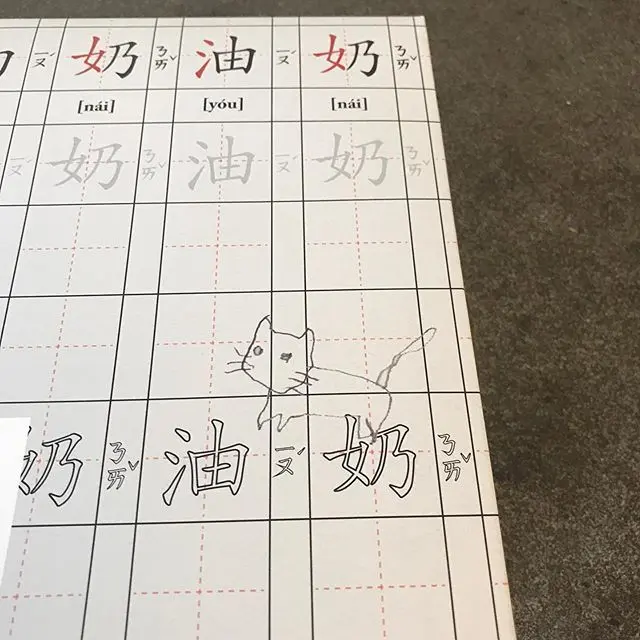 ㄧㄡˊ 奶 ㄋㄞˇ 油 ㄧㄡˊ 奶 ㄋㄞˇ
[nái] [yóu] [nái]
ㄧㄡˊ 奶 ㄋㄞˇ 油 ㄧㄡˊ 奶 ㄋㄞˇ
奶 ㄋㄞˇ 油 ㄧㄡˊ 奶 ㄋㄞˇ